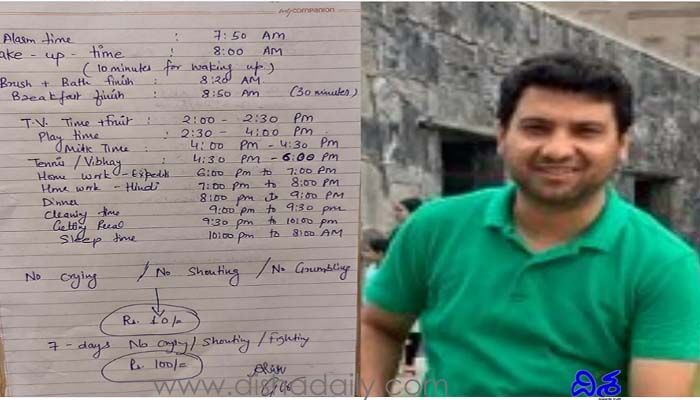 mycompanion
Alarm time : 7:50 AM
ake - up - time : 8:00 AM
( 10 minutes for waking up )
Brush + Bath finish : 8:20 AM
Breakfast finish : 8:50 AM (30 minutes)
T.V. Time + fruit : 2:00 - 2:30 PM
Play time : 2:30 - 4:00 PM
Milk Time : 4:00 PM - 4:30 PM
Tennis / Vibhay : 4:30 PM - 6:00 PM
Home work - 6:00 PM to 7:00 PM
Home work - Hindi 7:00 PM to 8:00 PM
Dinner 8:00 PM to 9:00 PM
Cleaning time 9:00 PM to 9:30 PM
Getting 9:30 PM to 10:00 PM
Sleep time 10:00 PM to 8:00 AM
No Crying / No Shouting / No Grumbling
Rs. 10/=
7 - days No Crying / Shouting / Fighting
Rs. 100/=
www.dishadaily.com
దిశ